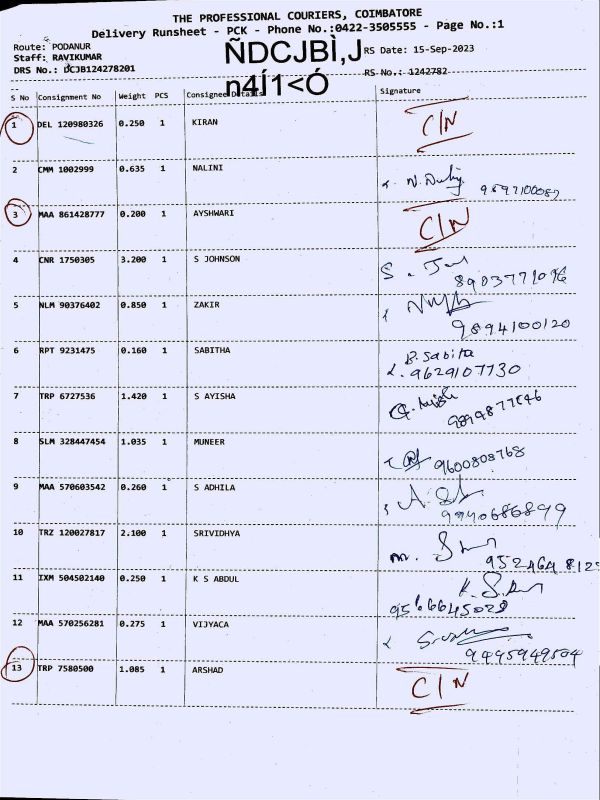 THE PROFESSIONAL COURIERS, COIMBATORE
Delivery Runsheet - PCK - Phone No.:0422-3505555 - Page No.:1
Route: PODANUR
ÑDCJBÌ,J RS Date: 15-Sep-2023
Staff: RAVIKUMAR
DRS No.: DCJB124278201 n4Í1<Ó RS No.: 1242782
S No Consignment No Weight PCS Consignee Details Signature
1 DEL 120980326 0.250 1 KIRAN C/N
2 CMM 1002999 0.635 1 NALINI
3 MAA 861428777 0.200 1 AYSHWARI C/N
4 CNR 1750305 3.200 1 S JOHNSON
8903771096
5 NLM 90376402 0.850 1 ZAKIR
9894100120
6 RPT 9231475 0.160 1 SABITHA B. Sabitha
9629107730
7 TRP 6727536 1.420 1 S AYISHA
8 SLM 328447454 1.035 1 MUNEER
9600808768
9 MAA 570603542 0.260 1 S ADHILA
9940686899
10 TRZ 120027817 2.100 1 SRIVIDHYA
11 IXM 504502140 0.250 1 K S ABDUL
12 MAA 570256281 0.275 1 VIJYACA
9445949504
13 TRP 7580500 1.085 1 ARSHAD C/N